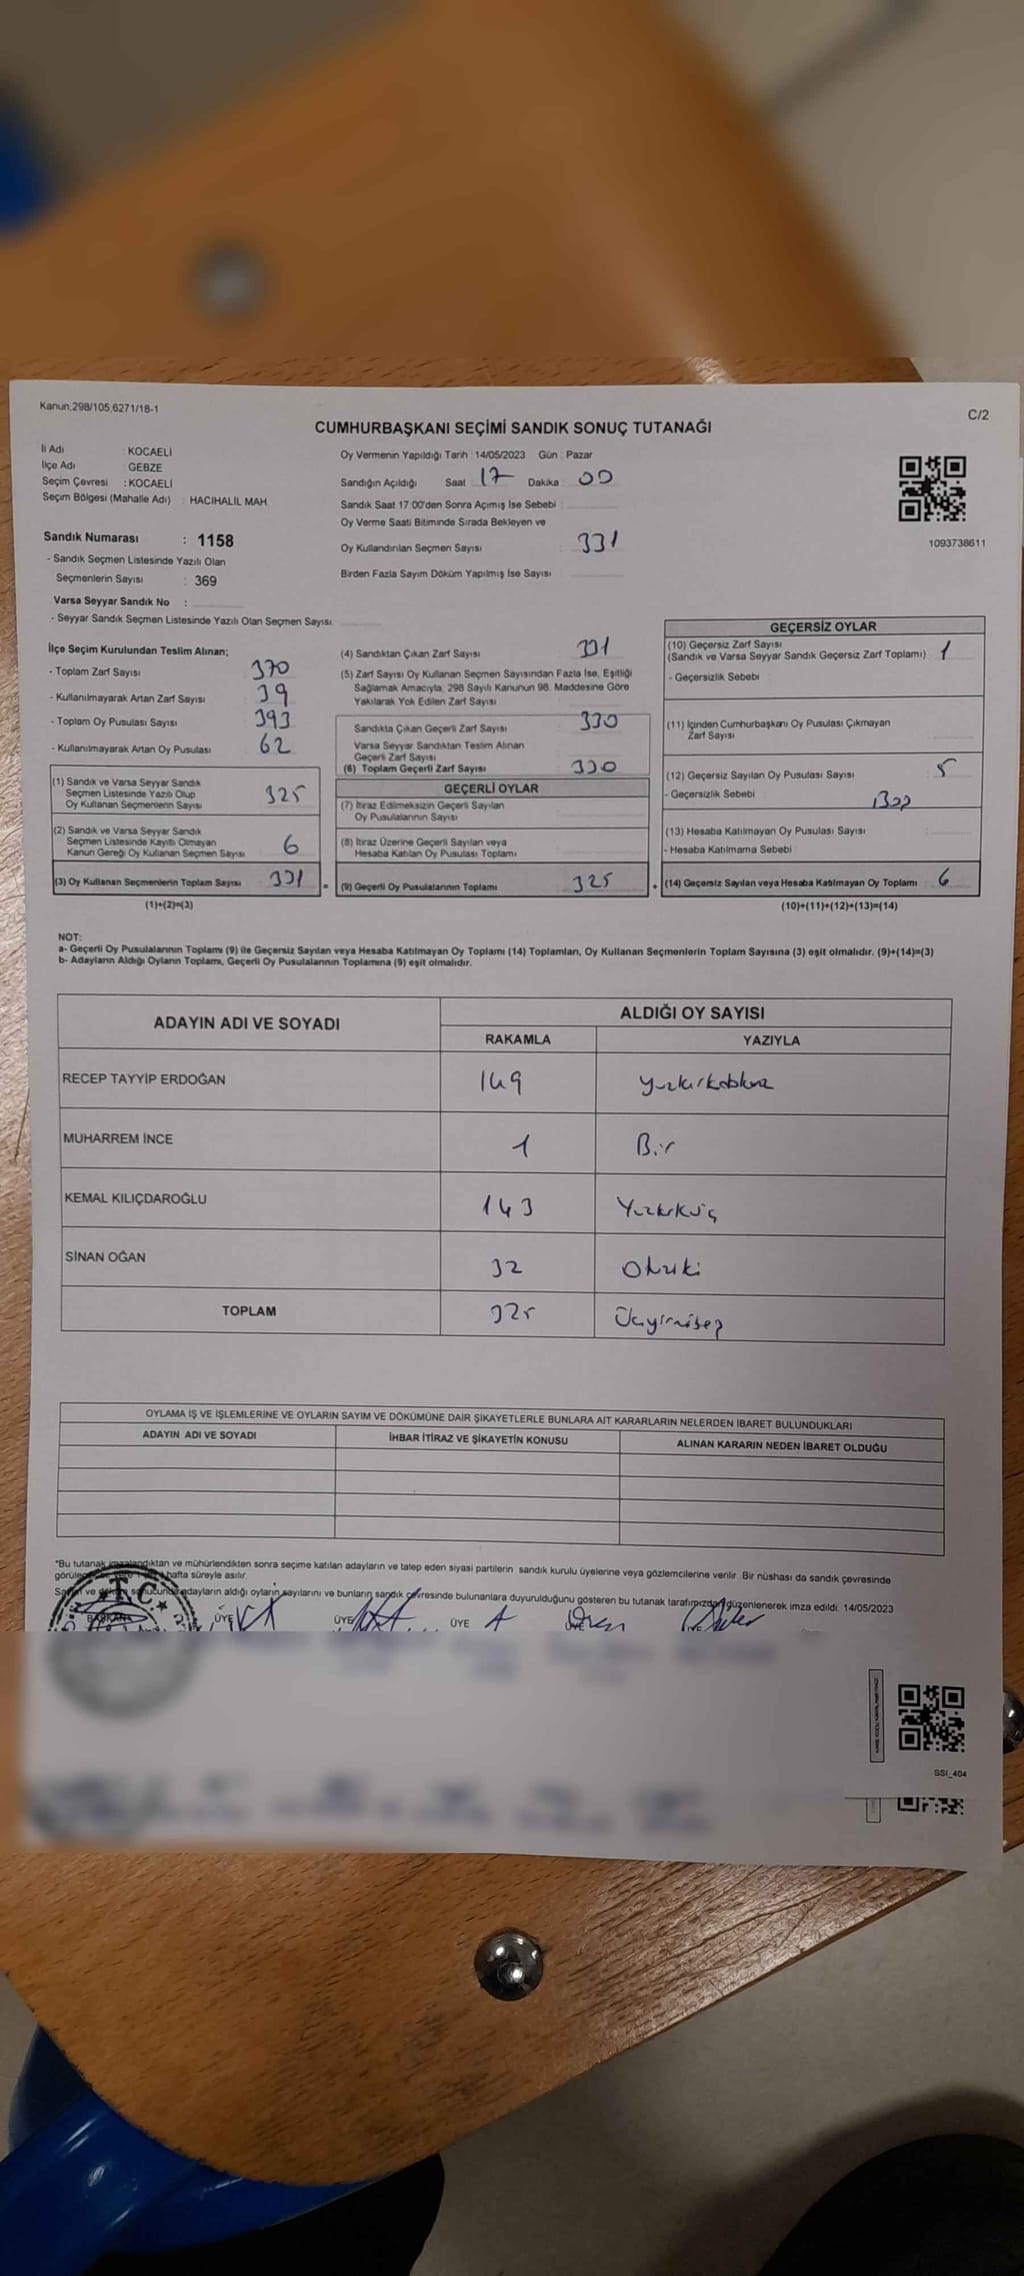 Kanun;298/105,6271/18-1
C/2
CUMHURBAŞKANI SEÇİMİ SANDIK SONUÇ TUTANAĞI
İl Adı : KOCAELİ
İlçe Adı : GEBZE
Seçim Çevresi : KOCAELİ
Seçim Bölgesi (Mahalle Adı) : HACIHALİL MAH
Sandık Numarası : 1158
- Sandık Seçmen Listesinde Yazılı Olan
Seçmenlerin Sayısı : 369
Varsa Seyyar Sandık No :
- Seyyar Sandık Seçmen Listesinde Yazılı Olan Seçmen Sayısı:
Oy Vermenin Yapıldığı Tarih : 14/05/2023 Gün : Pazar
Sandığın Açıldığı Saat 17 Dakika : 00
Sandık Saat 17:00'den Sonra Açımış İse Sebebi :
Oy Verme Saati Bitiminde Sırada Bekleyen ve
Oy Kullandırılan Seçmen Sayısı : 331
Birden Fazla Sayım Döküm Yapılmış İse Sayısı :
1093738611
İlçe Seçim Kurulundan Teslim Alınan;
- Toplam Zarf Sayısı : 370
- Kullanılmayarak Artan Zarf Sayısı : 39
- Toplam Oy Pusulası Sayısı : 393
- Kullanılmayarak Artan Oy Pusulası : 62
(1) Sandık ve Varsa Seyyar Sandık
Seçmen Listesinde Yazılı Olup
Oy Kullanan Seçmenlerin Sayısı : 325
(2) Sandık ve Varsa Seyyar Sandık
Seçmen Listesinde Kayıtlı Olmayan
Kanun Gereği Oy Kullanan Seçmen Sayısı : 6
(3) Oy Kullanan Seçmenlerin Toplam Sayısı : 331
(1)+(2)=(3)
(4) Sandıktan Çıkan Zarf Sayısı : 331
(5) Zarf Sayısı Oy Kullanan Seçmen Sayısından Fazla İse, Eşitliği
Sağlamak Amacıyla, 298 Sayılı Kanunun 98. Maddesine Göre
Yakılarak Yok Edilen Zarf Sayısı :
Sandıkta Çıkan Geçerli Zarf Sayısı : 330
Varsa Seyyar Sandıktan Teslim Alınan
Geçerli Zarf Sayısı :
(6) Toplam Geçerli Zarf Sayısı : 330
GEÇERLİ OYLAR
(7) İtiraz Edilmeksizin Geçerli Sayılan
Oy Pusulalarının Sayısı :
(8) İtiraz Üzerine Geçerli Sayılan veya
Hesaba Katılan Oy Pusulası Toplamı :
= (9) Geçerli Oy Pusulalarının Toplamı : 325
GEÇERSİZ OYLAR
(10) Geçersiz Zarf Sayısı
(Sandık ve Varsa Seyyar Sandık Geçersiz Zarf Toplamı) : 1
- Geçersizlik Sebebi :
(11) İçinden Cumhurbaşkanı Oy Pusulası Çıkmayan
Zarf Sayısı :
(12) Geçersiz Sayılan Oy Pusulası Sayısı : 5
- Geçersizlik Sebebi :
(13) Hesaba Katılmayan Oy Pusulası Sayısı :
- Hesaba Katılmama Sebebi :
+ (14) Geçersiz Sayılan veya Hesaba Katılmayan Oy Toplamı : 6
(10)+(11)+(12)+(13)=(14)
NOT:
a- Geçerli Oy Pusulalarının Toplamı (9) ile Geçersiz Sayılan veya Hesaba Katılmayan Oy Toplamı (14) Toplamları, Oy Kullanan Seçmenlerin Toplam Sayısına (3) eşit olmalıdır. (9)+(14)=(3)
b- Adayların Aldığı Oyların Toplamı, Geçerli Oy Pusulalarının Toplamına (9) eşit olmalıdır.
ADAYIN ADI VE SOYADI
ALDIĞI OY SAYISI
RAKAMLA YAZIYLA
RECEP TAYYİP ERDOĞAN 149 yüzkırkdokuz
MUHARREM İNCE 1 Bir
KEMAL KILIÇDAROĞLU 143 Yüzkırküç
SİNAN OĞAN 32 Otuziki
TOPLAM 325 Üçyirmibeş
OYLAMA İŞ VE İŞLEMLERİNE VE OYLARIN SAYIM VE DÖKÜMÜNE DAİR ŞİKAYETLERLE BUNLARA AİT KARARLARIN NELERDEN İBARET BULUNDUKLARI
ADAYIN ADI VE SOYADI İHBAR İTİRAZ VE ŞİKAYETİN KONUSU ALINAN KARARIN NEDEN İBARET OLDUĞU
*Bu tutanak imzalandıktan ve mühürlendikten sonra seçime katılan adayların ve talep eden siyasi partilerin sandık kurulu üyelerine veya gözlemcilerine verilir. Bir nüshası da sandık çevresinde
hafta süreyle asılır.
adayların aldığı oyların sayılarını ve bunların sandık çevresinde bulunanlara duyurulduğunu gösteren bu tutanak tarafımızdan düzenlenerek imza edildi. 14/05/2023
T.C.
BAŞKAN ÜYE ÜYE ÜYE
SSI_404